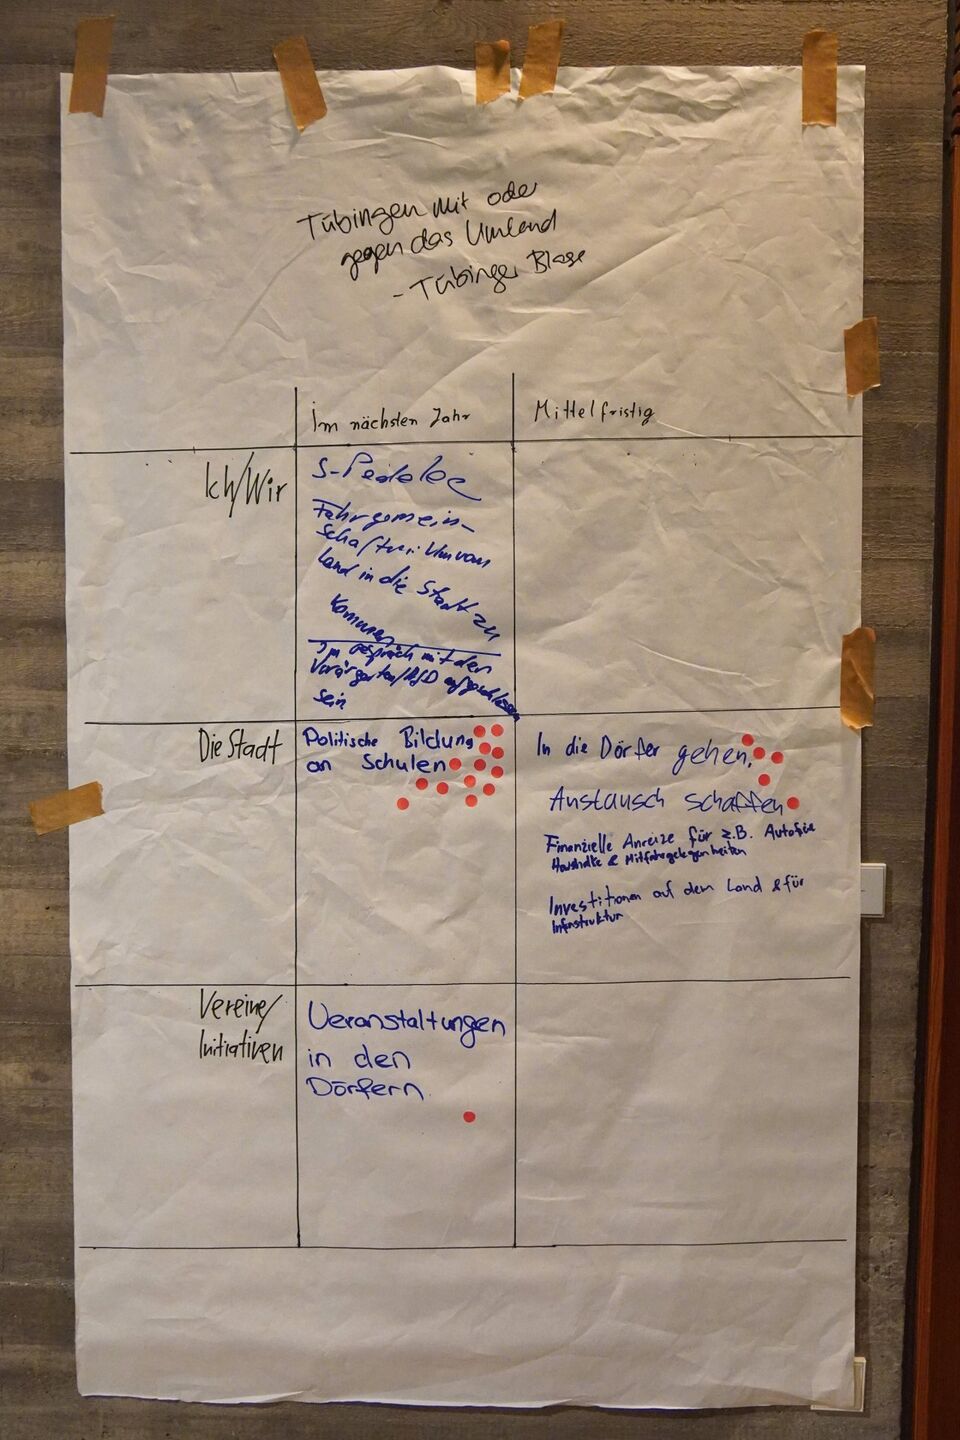 Tübingen mit oder
gegen das Umland
- Tübinger Blase
Im nächsten Jahr
Mittelfristig
Ich/Wir
S-Pedelec
Fahrgemein-
schaften: Um vom
Land in die Stadt zu
kommen
Im Gespräch mit den
sein
Die Stadt
Politische Bildung
an Schulen
In die Dörfer gehen,
Austausch schaffen
Finanzielle Anreize für z.B. Autofreie
Haushalte & Mitfahrgelegenheiten
Investitionen auf dem Land & für
Infrastruktur
Vereine/
Initiativen
Veranstaltungen
in den
Dörfern